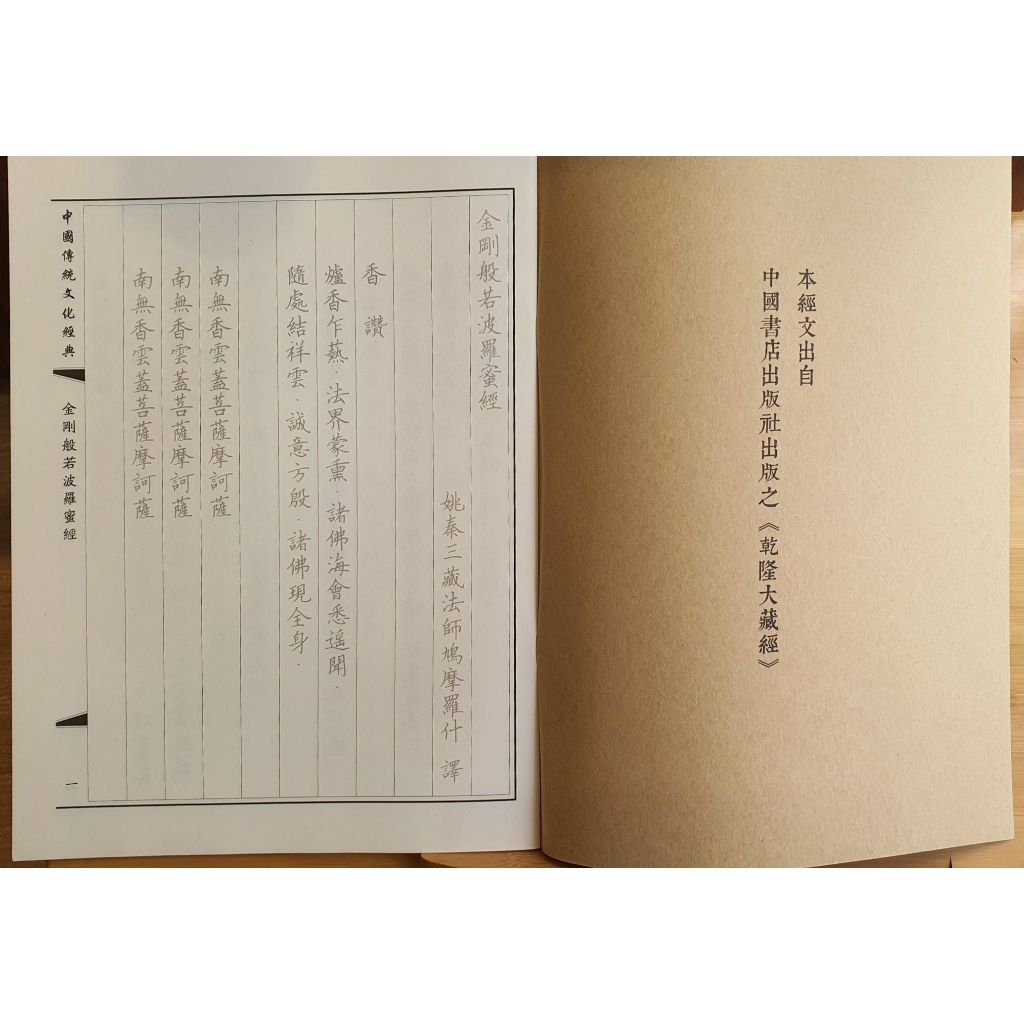 本經文出自
中國書店出版社出版之《乾隆大藏經》
金剛般若波羅蜜經
姚秦三藏法師鳩摩羅什 譯
香 讚
爐香乍爇．法界蒙熏．諸佛海會悉遥聞．
隨處結祥雲．誠意方殷．諸佛現全身．
南無香雲蓋菩薩摩訶薩
南無香雲蓋菩薩摩訶薩
南無香雲蓋菩薩摩訶薩
中國傳統文化經典 金剛般若波羅蜜經 一